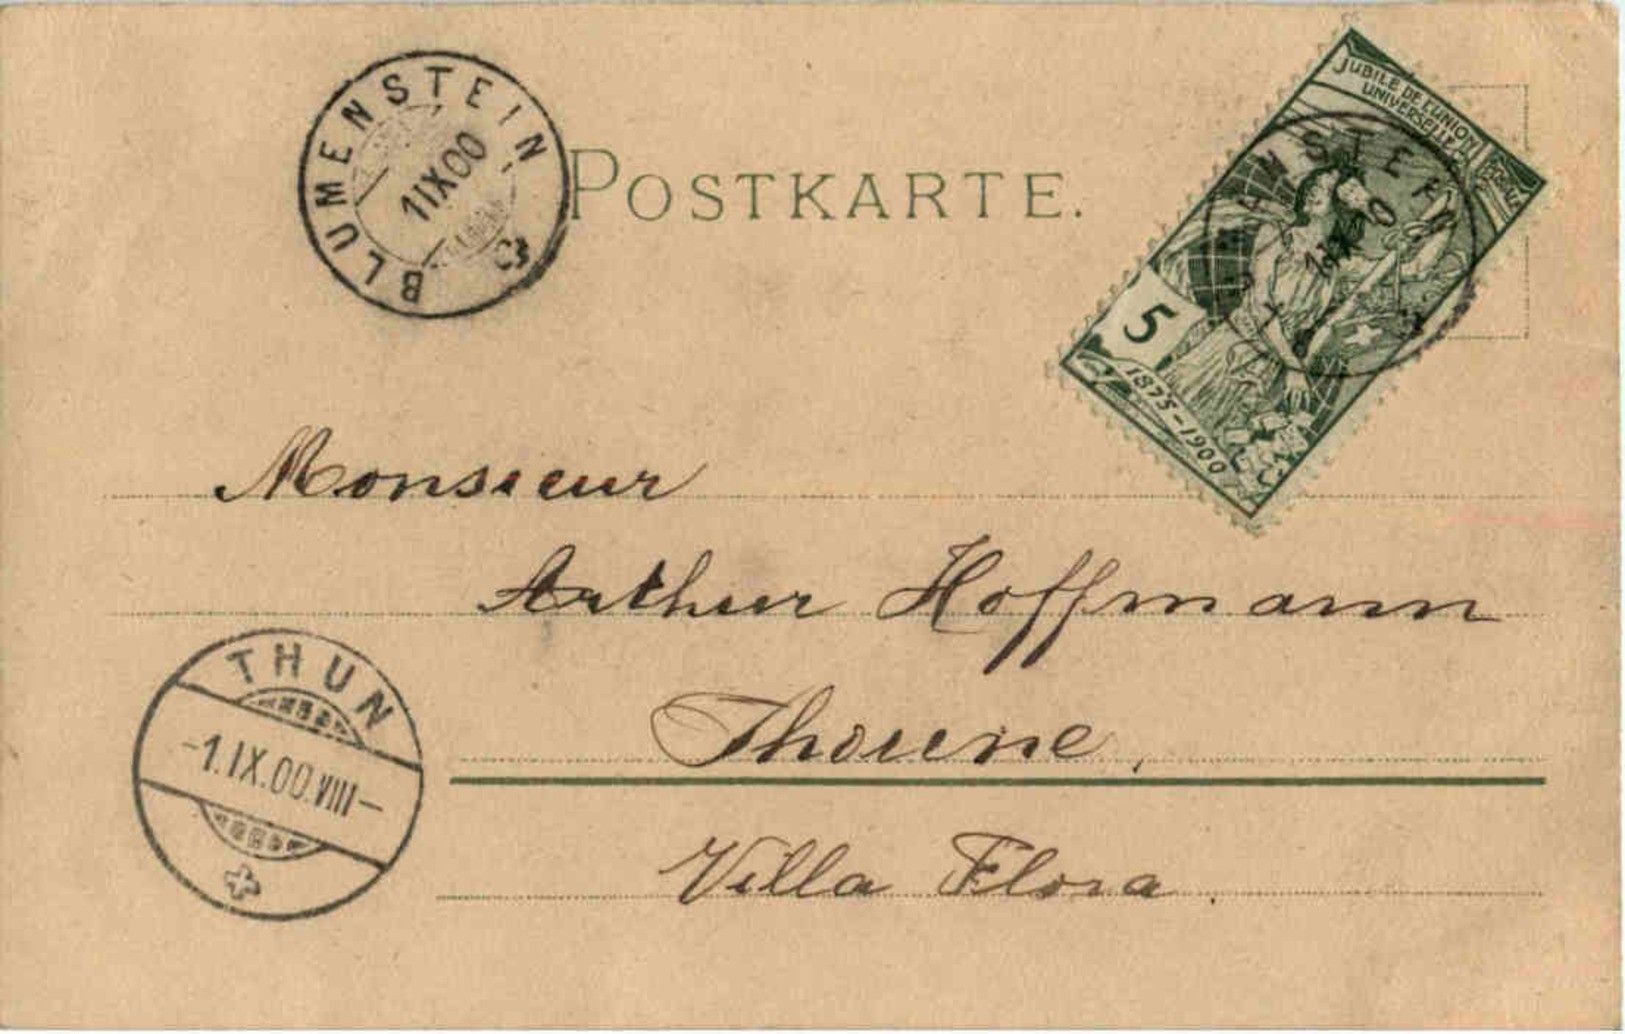 BLUMENSTEIN
1 IX 00
POSTKARTE.
JUBILÉ DE L'UNION
UNIVERSELLE
5
1875-1900
Monsieur
Arthur Hoffmann
Thoune,
Villa Flora.
THUN
-1.IX.00.VIII-